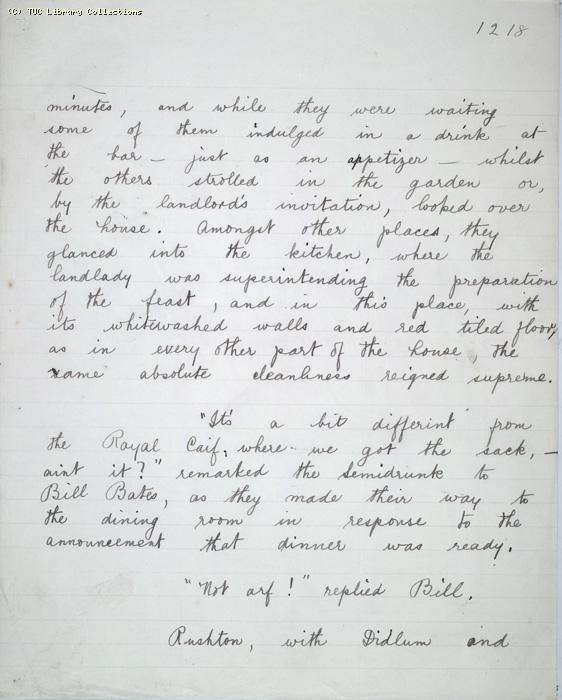 (C) TUC Library Collections
1218
minutes, and while they were waiting
some of them indulged in a drink at
the bar – just as an appetizer – whilst
the others strolled in the garden or,
by the landlord's invitation, looked over
the house. Amongst other places, they
glanced into the kitchen, where the
landlady was superintending the preparation
of the feast, and in this place, with
its whitewashed walls and red tiled floor,
as in every other part of the house, the
same absolute cleanliness reigned supreme.
"It's a bit differint from
the Royal Caif, where we got the sack, –
aint it?" remarked the semidrunk to
Bill Bates, as they made their way to
the dining room in response to the
announcement that dinner was ready.
"Not arf!" replied Bill.
Rushton, with Didlum and